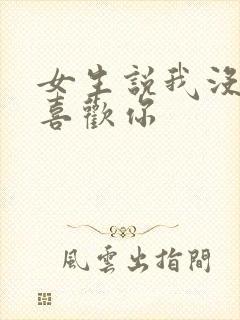 女生説我沒
喜歡你
風雲出指間